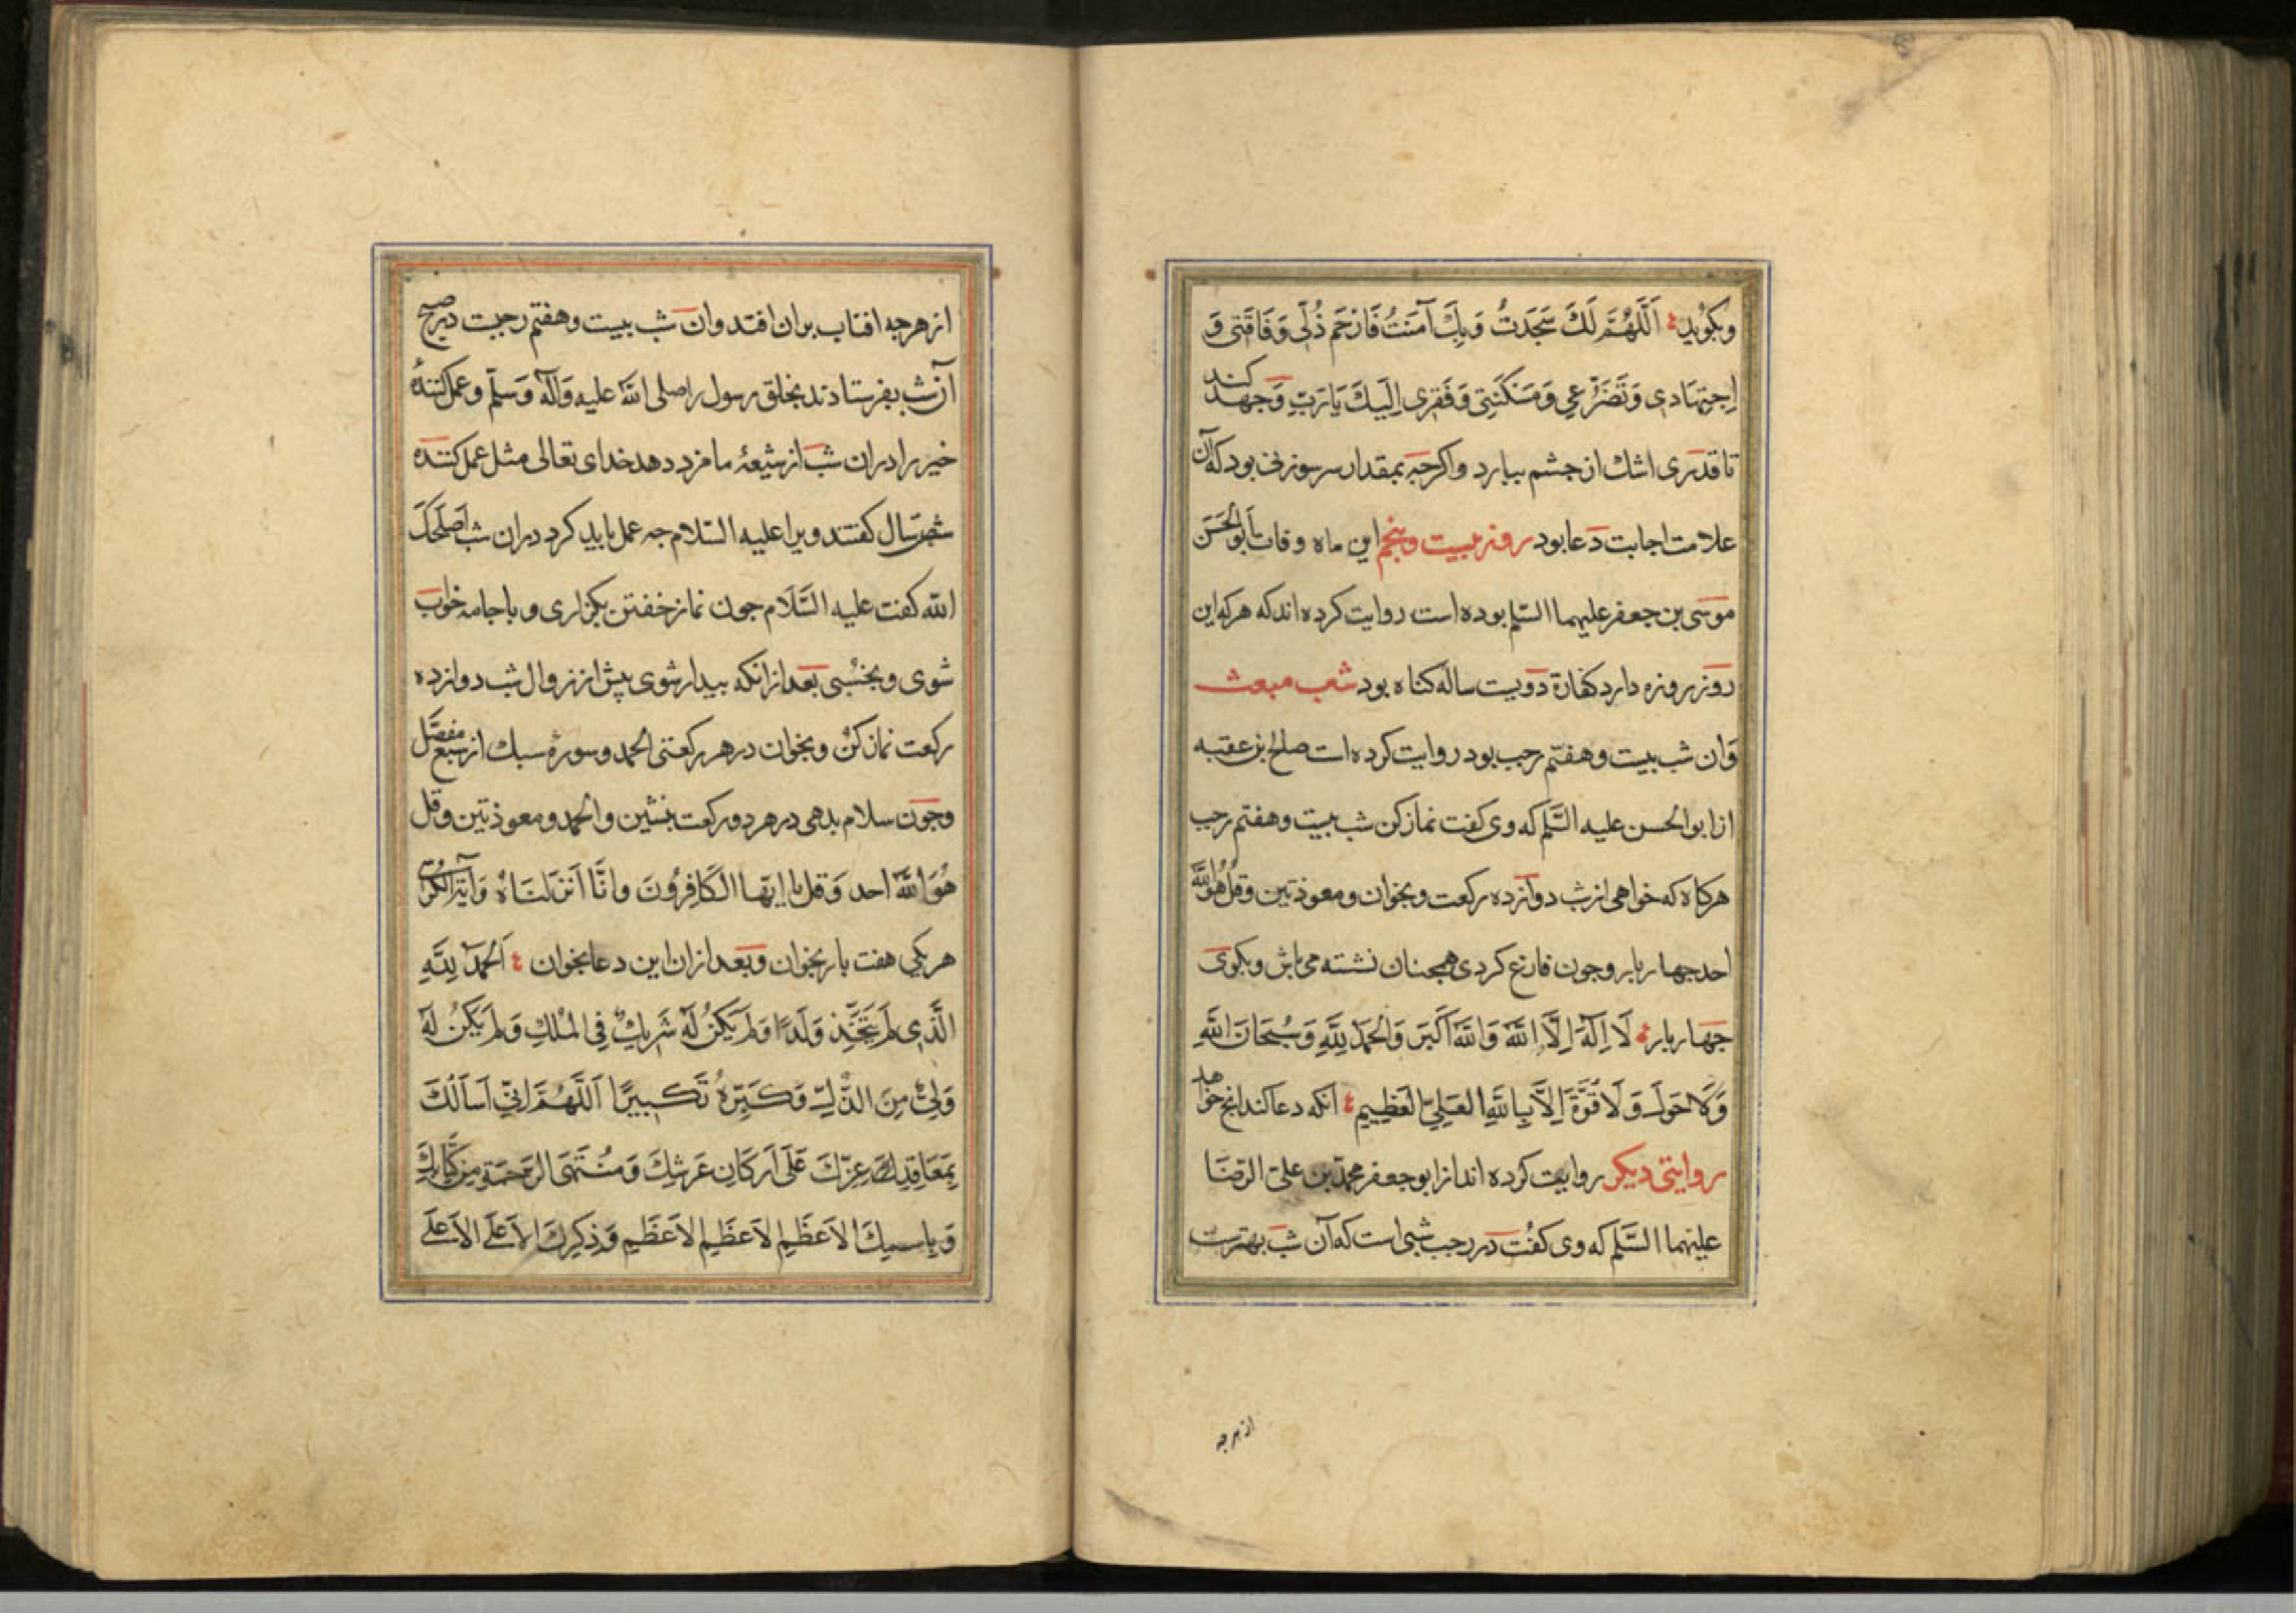 وبكويد اَللّٰهُمَّ لَكَ سَجَدتُ وَبِكَ آمَنتُ فَارْحَم ذُلّى وَفَاقَتى وَ
اِجتِهَادى وَتَضَرُّعى وَمَسْكَنَتِى وَفَقرِى اِلَيكَ يَارَبِّ وَجهد كند
تا قدرى اشك از چشم ببارد واكرچه بمقدار سر سوزنى بود كه آن
علامت اجابت دعا بود روز بيست وپنجم اين ماه وفات اَبوالحَسَن
موسى بن جعفر عليهما السّلم بوده است روايت كرده اند كه هركه اين
روز روزه دارد كفارة دويست ساله كناه بود شب مبعث
وَان شب بيست وهفتم رجب بود روايت كرده است صلح بن عقبه
از ابوالحسن عليه السَّلم كه وى كفت نماز كن شب بيست وهفتم رجب
هركاه كه خواهى از شب دوازده ركعت وبخوان ومعوذتين وقل هُوَ اللّٰهُ
احد جهار بار وجون فارغ كردى همجنان نشسته مى باش وبكوى
جهار بار لَا اِلٰهَ اِلَّا اللّٰه وَاللّٰهُ اَكبَر وَالحَمدُ لِلّٰهِ وَسُبحَانَ اللّٰهِ
وَلَا حَولَ وَلَا قُوَّةَ اِلَّا بِاللّٰهِ العَلِىِّ العَظِيمِ آنكه دعا كند انج خواهد
روايتى ديكر روايت كرده اند از ابو جعفر محمّد بن على الرّضَا
عليهما السَّلم كه وى كفت در رجب شبى است كه آن شب بهترست
از هرجه
از هرجه افتاب بران افتد وان شب بيست وهفتم رجبت در صبح
آن شب بفرستادند بخلق رسول را صلى اللّٰه عليه وَآله وَسلّم وعمل كنندۀ
خير را دران شب از شيعۀ ما مزد دهد خداى تعالى مثل عمل كننده
شصت سال كفتند ويرا عليه السّلام جه عمل بايد كرد دران شب اَصلَحَكَ
اللّٰه كفت عليه السَّلَام جون نماز خفتن بكزارى وبا جامه خواب
شوى وبخسبى بعد ازانكه بيدار شوى پيش از زوال شب دوازده
ركعت نماز كن وبخوان در هر ركعتى الحمد وسورۀ سبك از سبع مفصَّل
وجون سلام بدهى در هر دو ركعت بنشين والحمد ومعوذتين وقل
هُوَ اللّٰه احد وَقل يا ايّها الكَافِرُونَ وانّا اَنزَلنَاهُ وَآية الكرسى
هر يكى هفت بار بخوان وبعد ازان اين دعا بخوان اَلحَمدُ لِلّٰهِ
الَّذِى لَم يَتَّخِذ وَلَدًا وَلَم يَكُن لَهُ شَرِيكٌ فِى المُلكِ وَلَم يَكُن لَهُ
وَلِىٌّ مِنَ الذُّلِّ وَكَبِّرهُ تَكبِيرًا اَللّٰهُمَّ اِنِّى اَساَلُكَ
بِمَعَاقِدِ عِزِّكَ عَلَى اَركَانِ عَرشِكَ وَمُنتَهَى الرَحمَةِ مِن كِتَابِكَ
وَبِاسمِكَ الاَعظَمِ الاَعظَمِ الاَعظَمِ وَذِكرِكَ الاَعلَى الاَعلَى